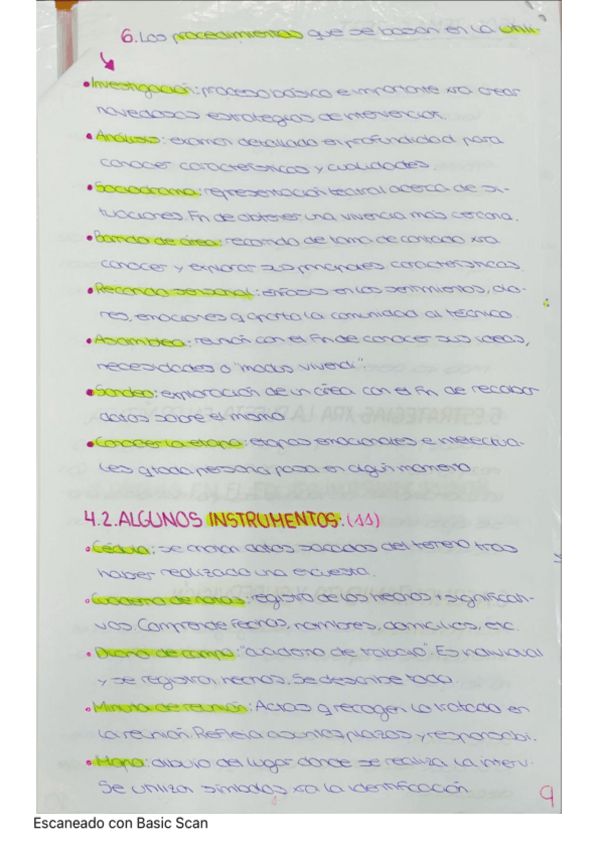 6. Los procedimientos que se basan en la
• Investigación: proceso básico e importante xra crear
novedosas estrategias de intervención.
• Análisis: examen detallado en profundidad para
conocer características y cualidades.
• Sociodrama: representación teatral acerca de si-
tuaciones. Fin de obtener una vivencia más cercana.
• Barrido de área: recorrido de toma de contacto xra
conocer y explorar sus principales características.
• Recorrido sensorial: énfasis en los sentimientos, olo-
res, emociones q aporta la comunidad al técnico.
• Asamblea: reunión con el fin de conocer sus ideas,
necesidades o "modus vivendi".
• Sondeo: exploración de un área con el fin de recabar
datos sobre el mismo.
• Conocer la etapa: etapas emocionales e intelectua-
les q toda persona pasa en algún momento.
4.2. ALGUNOS INSTRUMENTOS. (11)
• Cédula: se anotan datos sacados del terreno tras
haber realizado una encuesta.
• Cuaderno de notas: registro de los hechos + significati-
vos. Comprende fechas, nombres, domicilios, etc.
• Diario de campo: "cuaderno de trabajo". Es individual
y se registran hechos. Se describe todo.
• Minuta de reunión: Actas q recogen lo tratado en
la reunión. Refleja asuntos, plazos y responsabi.
• Mapa: dibujo del lugar donde se realiza la interv.
Se utilizan símbolos xa la identificación.
9
Escaneado con Basic Scan